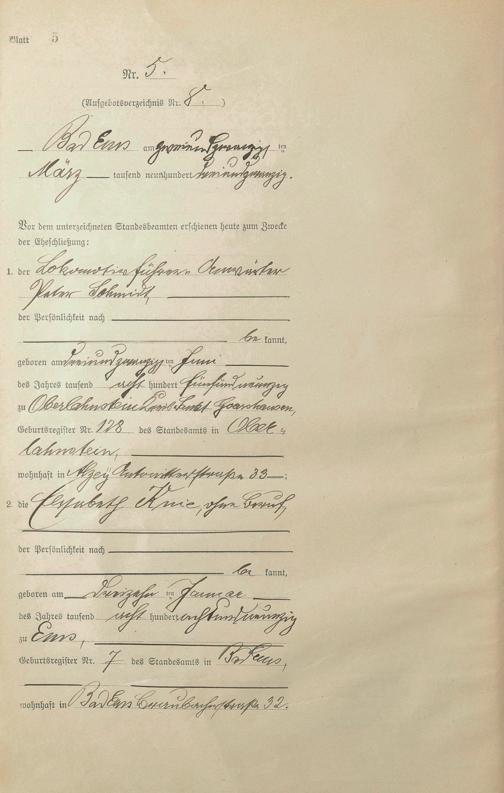 Blatt 5
Nr. 5.
(Aufgebotsverzeichnis Nr. 8.)
Bad Ems am zweiundzwanzigsten
März tausend neunhundert dreiundzwanzig.
Vor dem unterzeichneten Standesbeamten erschienen heute zum Zwecke
der Eheschließung:
1. der Lokomotivführer-Anwärter
Peter Schmidt,
der Persönlichkeit nach
be kannt,
geboren am dreiundzwanzigsten Juni
des Jahres tausend acht hundert fünfundneunzig
zu Oberlahnstein Kreis Sankt Goarshausen,
Geburtsregister Nr. 128 des Standesamts in Ober-
lahnstein,
wohnhaft in Alzey straße 33;
2. die Elisabeth Knie, ohne Beruf,
der Persönlichkeit nach
be kannt,
geboren am dreizehnten Januar
des Jahres tausend acht hundert achtundneunzig
zu Ems,
Geburtsregister Nr. 7 des Standesamts in Bad Ems,
wohnhaft in Bad Ems straße 32.